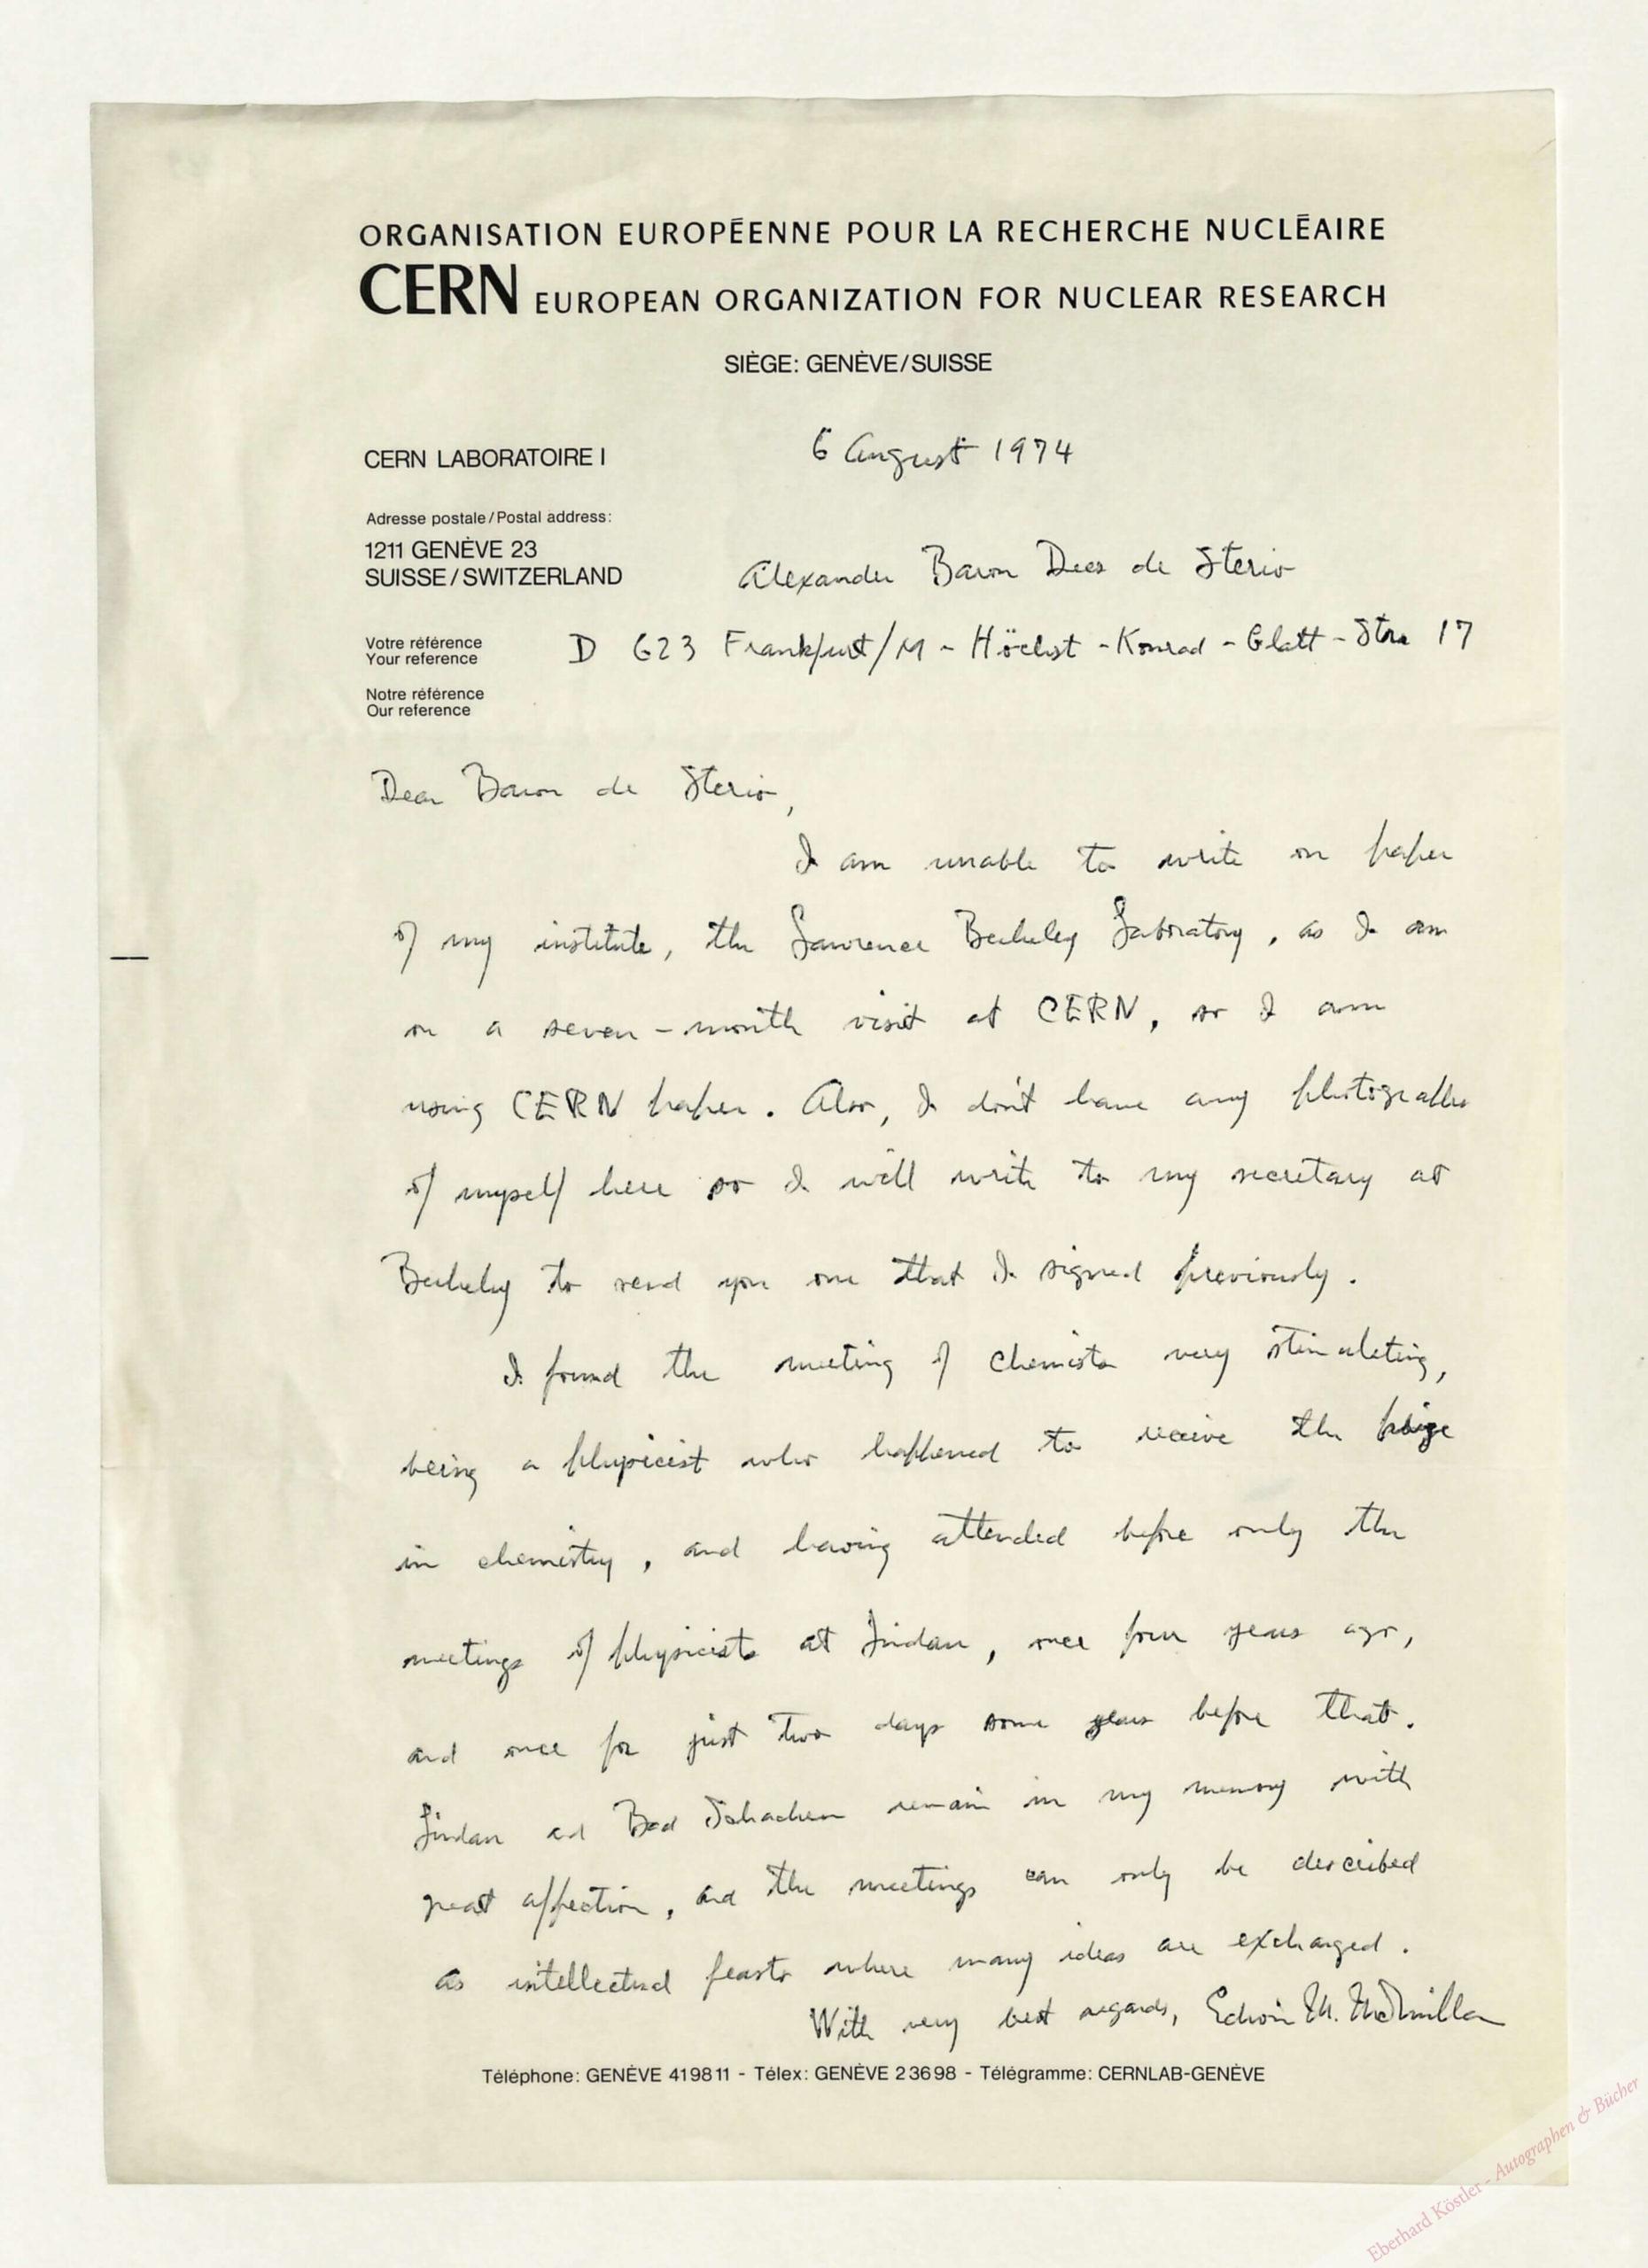 ORGANISATION EUROPÉENNE POUR LA RECHERCHE NUCLÉAIRE
CERN EUROPEAN ORGANIZATION FOR NUCLEAR RESEARCH
SIÈGE: GENÈVE/SUISSE
CERN LABORATOIRE I
6 August 1974
Adresse postale/Postal address:
1211 GENÈVE 23
SUISSE/SWITZERLAND
Alexander Baron Dees de Sterio
Votre référence
Your reference
D 623 Frankfurt/M - Höchst - Konrad - Glatt - Stra 17
Notre référence
Our reference
Dear Baron de Sterio,
I am unable to write on paper
of my institute, the Lawrence Berkeley Laboratory, as I am
on a seven-month visit at CERN, so I am
using CERN paper. Also, I don't have any photographs
of myself here so I will write to my secretary at
Berkeley to send you one that I signed previously.
I found the meeting of chemists very stimulating,
being a physicist who happened to receive the prize
in chemistry, and having attended before only the
meetings of physicists at Lindau, once four years ago,
and once for just two days some years before that.
Lindau and Bad Schachen remain in my memory with
great affection, and the meetings can only be described
as intellectual feasts where many ideas are exchanged.
With very best regards, Edwin M. McMillan
Téléphone: GENÈVE 419811 - Télex: GENÈVE 23698 - Télégramme: CERNLAB-GENÈVE
Eberhard Köstler - Autographen & Bücher